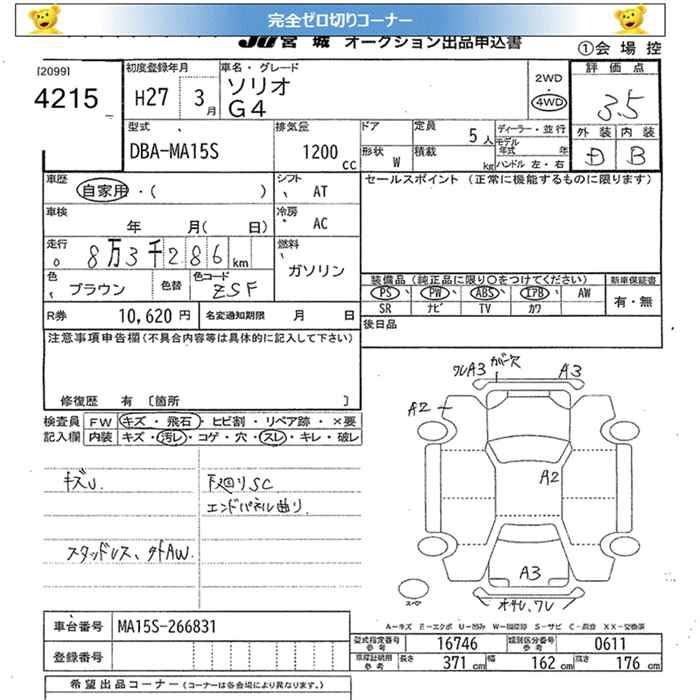 完全ゼロ切りコーナー
JU 宮城 オークション出品申込書
①会場控
[2099]
4215
初度登録年月 H27 3月
車名・グレード ソリオ G4
2WD
4WD
評価点 3.5
外装 D 内装 B
型式 DBA-MA15S
排気量 1200 CC
ドア
形状 W
定員 5人
積載 kg
ディーラー・並行
モデル年式 年
ハンドル 左・右
車歴 自家用・( )
シフト AT
セールスポイント (正常に機能するものに限ります)
車検 年 月( 日)
冷房 AC
走行 8万3千286km
燃料 ガソリン
色 ブラウン
色替
色コード ZSF
装備品 (純正品に限り○をつけてください)
新車保証書
PS PW ABS エアB AW
有・無
SR ナビ TV カワ
R券 10,620円
名変通知期限 月 日
後日品
注意事項申告欄(不具合内容等は具体的に記入して下さい)
修復歴 有 〔箇所 〕
検査員記入欄
FW キズ・飛石・ヒビ割・リペア跡・×要
内装 キズ・汚レ・コゲ・穴・スレ・キレ・破レ
キズU.
下廻りSC
エンドパネル曲り.
スタッドレス、外AW.
ワレA3 カバー欠
A3
A2
A2
A3
オサレ、ワレ
スペア
A-キズ E-エクボ U-凹み W-補修跡 S-サビ C-腐食 XX-交換済
車台番号 MA15S-266831
登録番号
型式指定番号 参考 16746
類別区分番号 参考 0611
車庫証明用 参考 長さ 371cm 幅 162cm 高さ 176cm
希望出品コーナー (コーナーは各会場により異なります。)